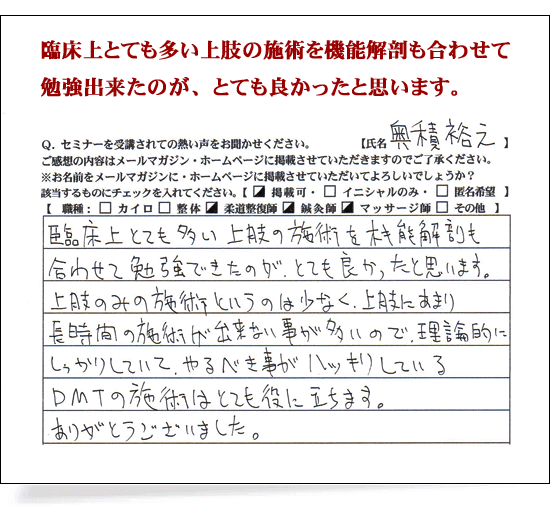 臨床上とても多い上肢の施術を機能解剖も合わせて
勉強出来たのが、とても良かったと思います。
Q. セミナーを受講されての熱い声をお聞かせください。 【氏名 奥積裕え 】
ご感想の内容はメールマガジン・ホームページに掲載させていただきますのでご了承ください。
※お名前をメールマガジン・ホームページに掲載させていただいてよろしいでしょうか?
該当するものにチェックを入れてください。【 ☑ 掲載可・ □ イニシャルのみ・ □ 匿名希望 】
【 職種: □ カイロ □ 整体 ☑ 柔道整復師 ☑ 鍼灸師 ☑ マッサージ師 □ その他 】
臨床上とても多い上肢の施術を機能解剖も
合わせて勉強できたのが、とても良かったと思います。
上肢のみの施術というのは少なく、上肢にあまり
長時間の施術が出来ない事が多いので、理論的に
しっかりしていて、やるべき事がハッキリしている
DMTの施術はとても役に立ちます。
ありがとうございました。